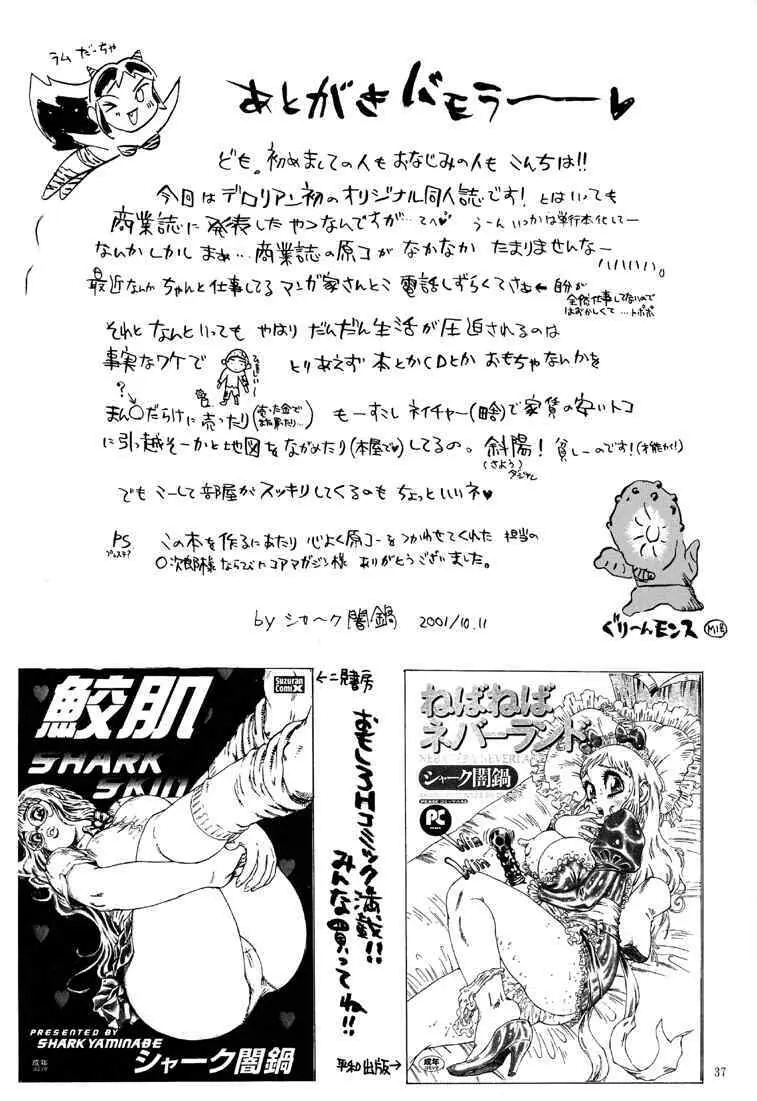 ラムだーちゃ
あとがきバモラーー♥
ども。初めましての人もおなじみの人もこんちは!!
今回はデロリアン初のオリジナル同人誌です! とはいっても
商業誌に発表したやつなんですが…てへ♥ うーんいつかは単行本化してー
なんかしかしまぁ…商業誌の原コがなかなかたまりませんなー
ハハハハハ。
最近なんかちゃんと仕事してるマンガ家さんとこ電話しずらくてさぁ←自分が
全然仕事してないので
はずかしくて…トホホ
それとなんといってもやはりだんだん生活が圧迫されるのは
事実なワケで とりあえず本とかCDとかおもちゃなんかを
?
まん〇だらけに売ったり(売った金で
また買ったり…) もーすこしネイチャー(陰)で家賃の安いトコ
に引っ越そーかと地図をながめたり(本屋で♥)してるの。斜陽! 貧しーのです!(才能が!)
(さよう)
でもこーして部屋がスッキリしてくるのもちょっといいネ♥
PS この本を作るにあたり心よく原コーをつかわせてくれた担当の
プレステ?
〇次郎様ならびにコアマガジン様ありがとうございました。
by シャーク闇鍋 2001/10.11
ぐりーんモンス
M1号
鮫肌
Suzuran
ComiX
SHARK
SKIN
PRESENTED BY
SHARK YAMINABE
シャーク闇鍋
成年
コミック
←二見書房
おもしろHコミック満載!!
みんな買ってね!!
平和出版→
ねばねば
ネバーランド
NEBANEBA NEVERLAND
シャーク闇鍋
PC
Win
Win
成年
コミック
37